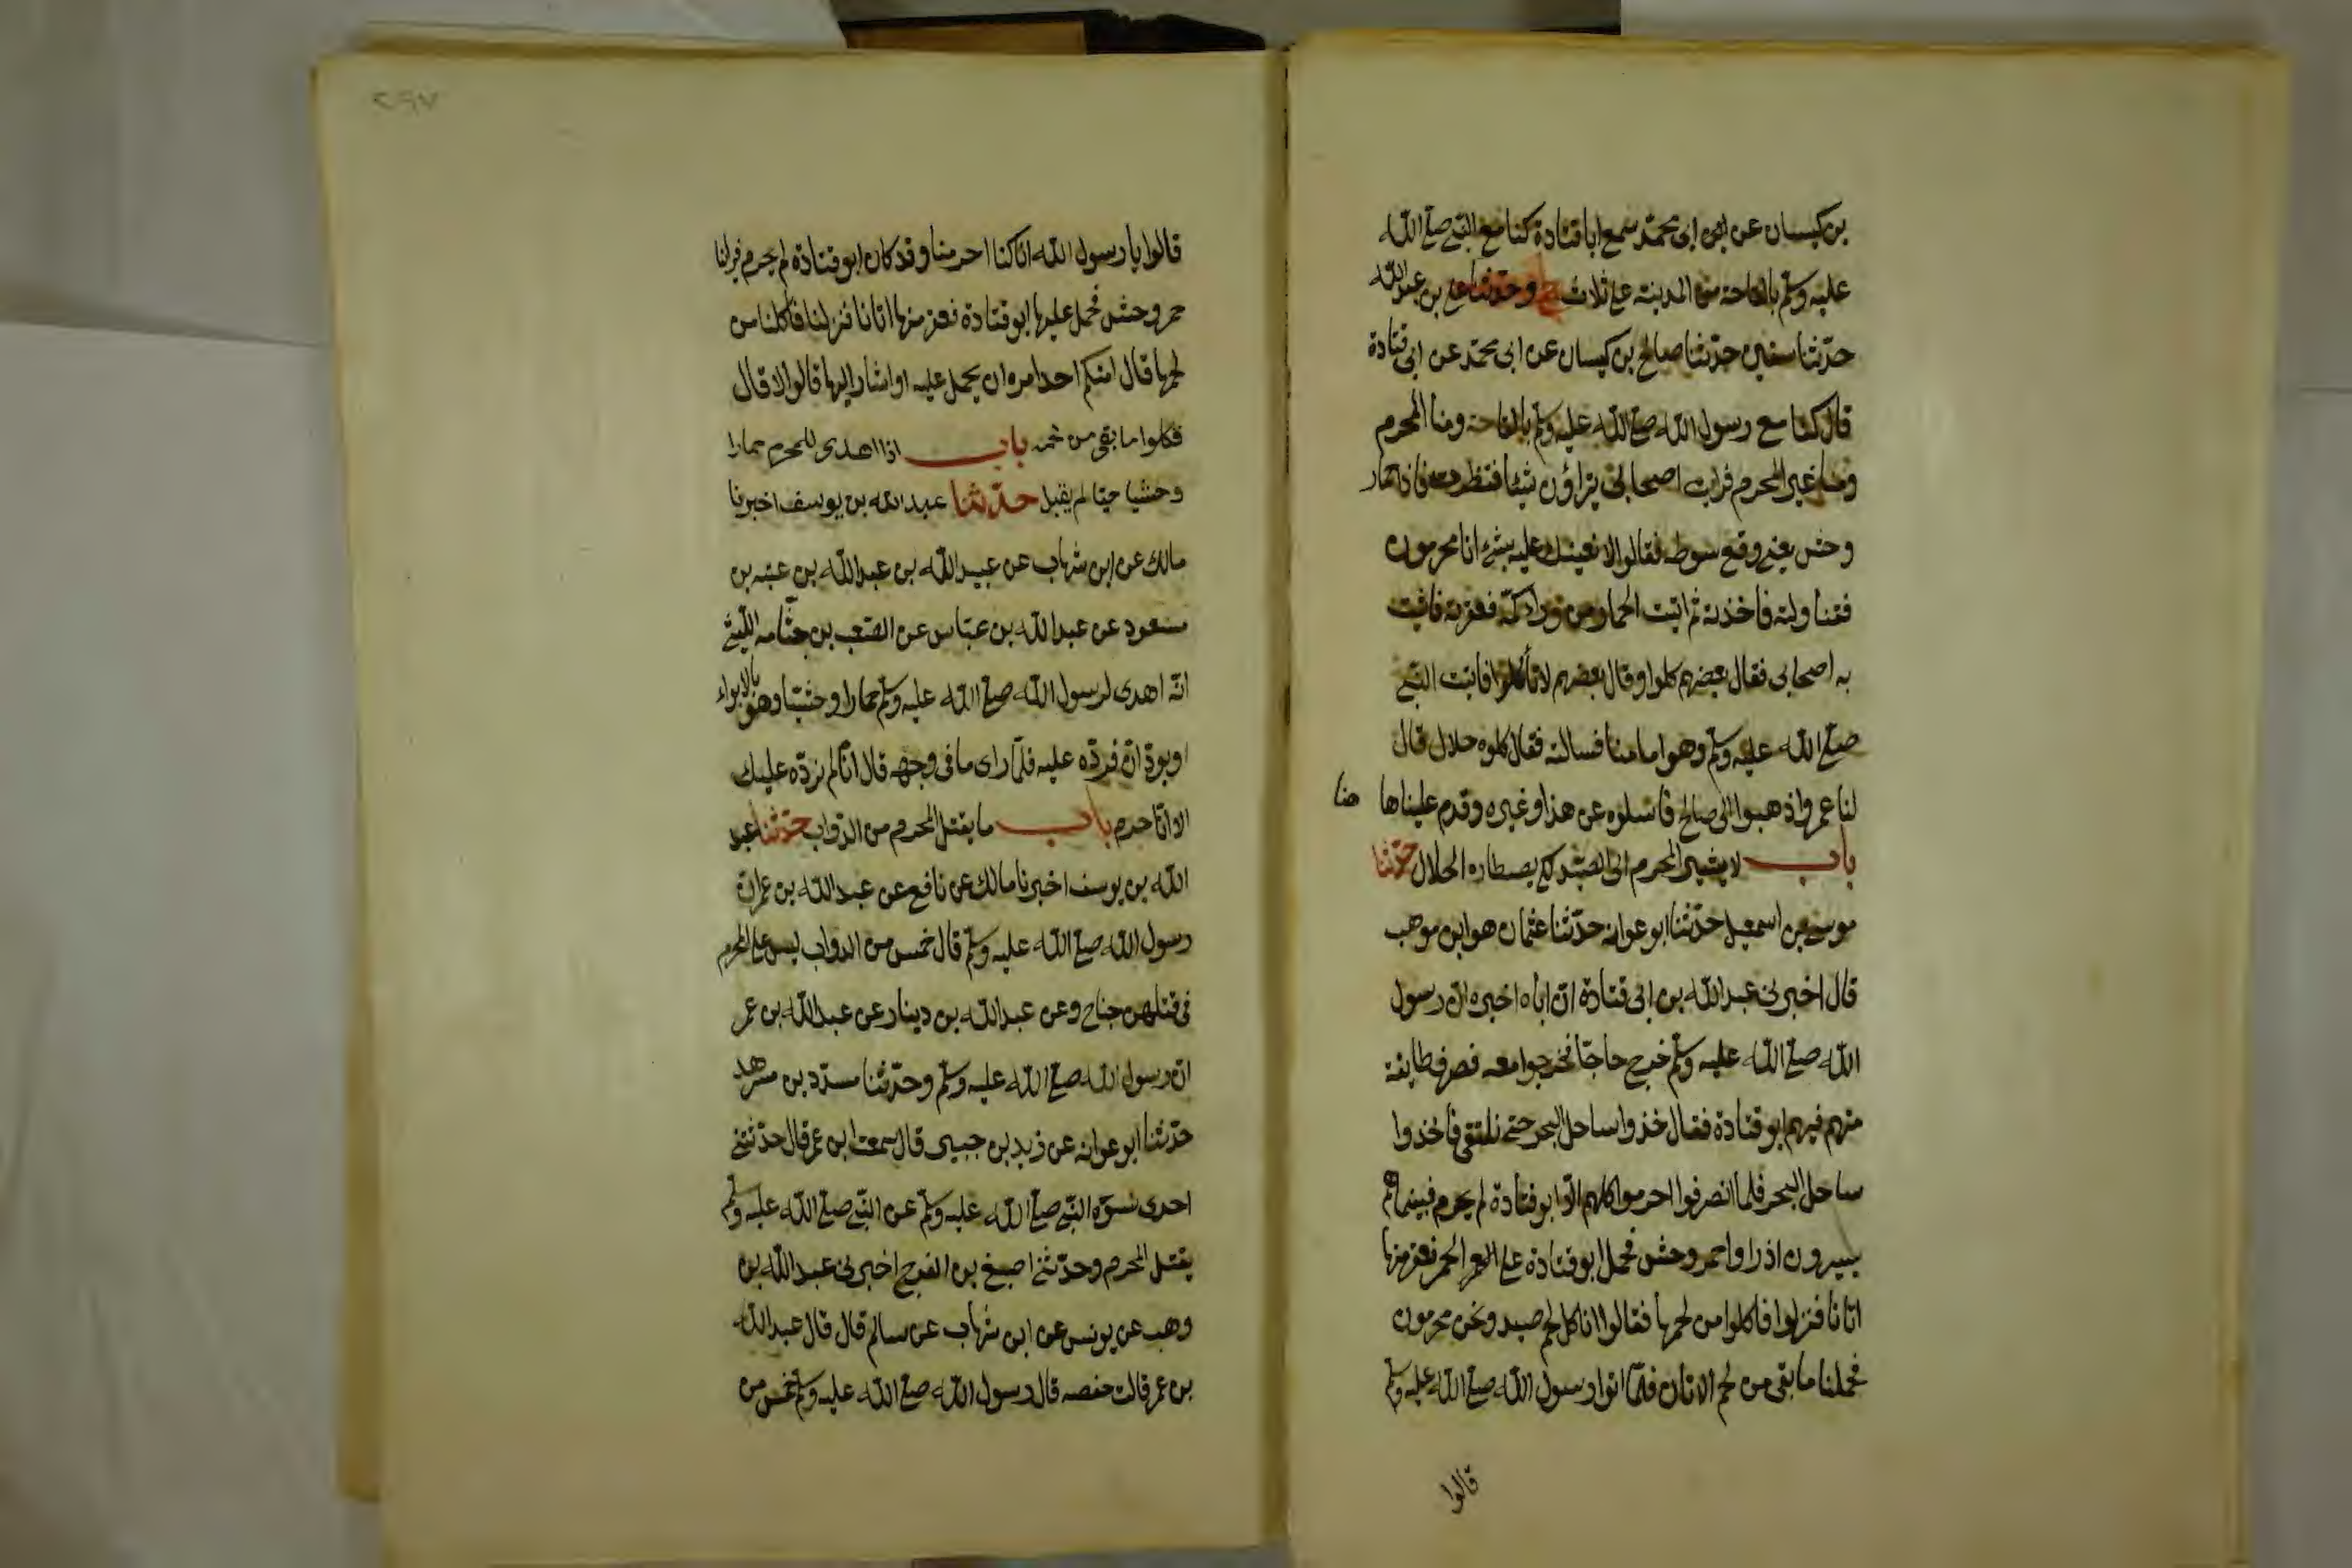 بن كيسان عن ابى محمد سمع ابا قتادة كنا مع النبي صلى الله
عليه وسلم بالقاحة من المدينة على ثلاث ح وحدثنا على بن عبد الله
حدّثنا سفين حدّثنا صالح بن كيسان عن ابى محمّد عن ابى قتادة
قال كنا مع رسول الله صلى الله عليه وسلم بالقاحة ومنا المحرم
ومنا غير المحرم فرايت اصحابى يتراؤن شيئا فنظرت فاذا حمار
وحش يعنى وقع سوطه فقالوا لا نعينك عليه بشئ انا محرمون
فتناولته فاخذته ثم اتيت الحمار من وراء اكمة فعقرته فاتيت
به اصحابى فقال بعضهم كلوا وقال بعضهم لا تأكلوا فاتيت النبي
صلى الله عليه وسلم وهو امامنا فسالته فقال كلوه حلال قال
لنا عمرو اذهبوا الى صالح فاسئلوه عن هذا وغيره وقدم علينا ها هنا
باب لا يشير المحرم الى الصيد لكى يصطاده الحلال حدّثنا
موسى بن اسمعيل حدّثنا ابو عوانه حدّثنا عثمان هو ابن موهب
قال اخبرنى عبد الله بن ابى قتادة انّ اباه اخبره انّ رسول
الله صلى الله عليه وسلم خرج حاجّا فخرجوا معه فصرف طايفة
منهم فيهم ابو قتادة فقال خذوا ساحل البحر حتى نلتقى فاخذوا
ساحل البحر فلما انصرفوا احرموا كلهم الّا ابو قتادة لم يحرم فبينما هم
يسيرون اذ راوا حمر وحش فحمل ابو قتادة على الحمر فعقر منها
اتانا فنزلوا فاكلوا من لحمها فقالوا اناكل لحم صيد ونحن محرمون
فحملنا ما بقى من لحم الاتان فلمّا اتوا رسول الله صلى الله عليه وسلم
قالوا
٢٩٧
قالوا يا رسول الله انا كنا احرمنا وقد كان ابو قتادة لم يحرم فراينا
حمر وحش فحمل عليها ابو قتادة فعقر منها اتانا فنزلنا فاكلنا من
لحمها قال امنكم احد امره ان يحمل عليه او اشار اليها قالوا لا قال
فكلوا ما بقى من لحمه باب اذا اهدى للمحرم حمارا
وحشيا حيّا لم يقبل حدّثنا عبد الله بن يوسف اخبرنا
مالك عن ابن شهاب عن عبيد الله بن عبد الله بن عتبه بن
مسعود عن عبد الله بن عبّاس عن الصّعب بن جثّامه الليثى
انّه اهدى لرسول الله صلى الله عليه وسلم حمارا وحشيّا وهو بالابواء
او بودّان فردّه عليه فلمّا راى ما فى وجهه قال انّا لم نردّه عليك
الا انّا حرم باب ما يقتل المحرم من الدّواب حدّثنا عبد
الله بن يوسف اخبرنا مالك عن نافع عن عبد الله بن عمر انّ
رسول الله صلى الله عليه وسلم قال خمس من الدواب ليس على المحرم
فى قتلهن جناح وعن عبد الله بن دينار عن عبد الله بن عمر
انّ رسول الله صلى الله عليه وسلم وحدّثنا مسدّد بن مسرهد
حدّثنا ابو عوانه عن زيد بن جبير قال سمعت ابن عمر قال حدّثتنى
احدى نسوة النّبى صلى الله عليه وسلم عن النّبى صلى الله عليه وسلم
يقتل المحرم وحدّثنى اصبغ بن الفرج اخبرنى عبد الله بن
وهب عن يونس عن ابن شهاب عن سالم قال قال عبد الله
بن عمر قالت حفصه قال رسول الله صلى الله عليه وسلم خمس من